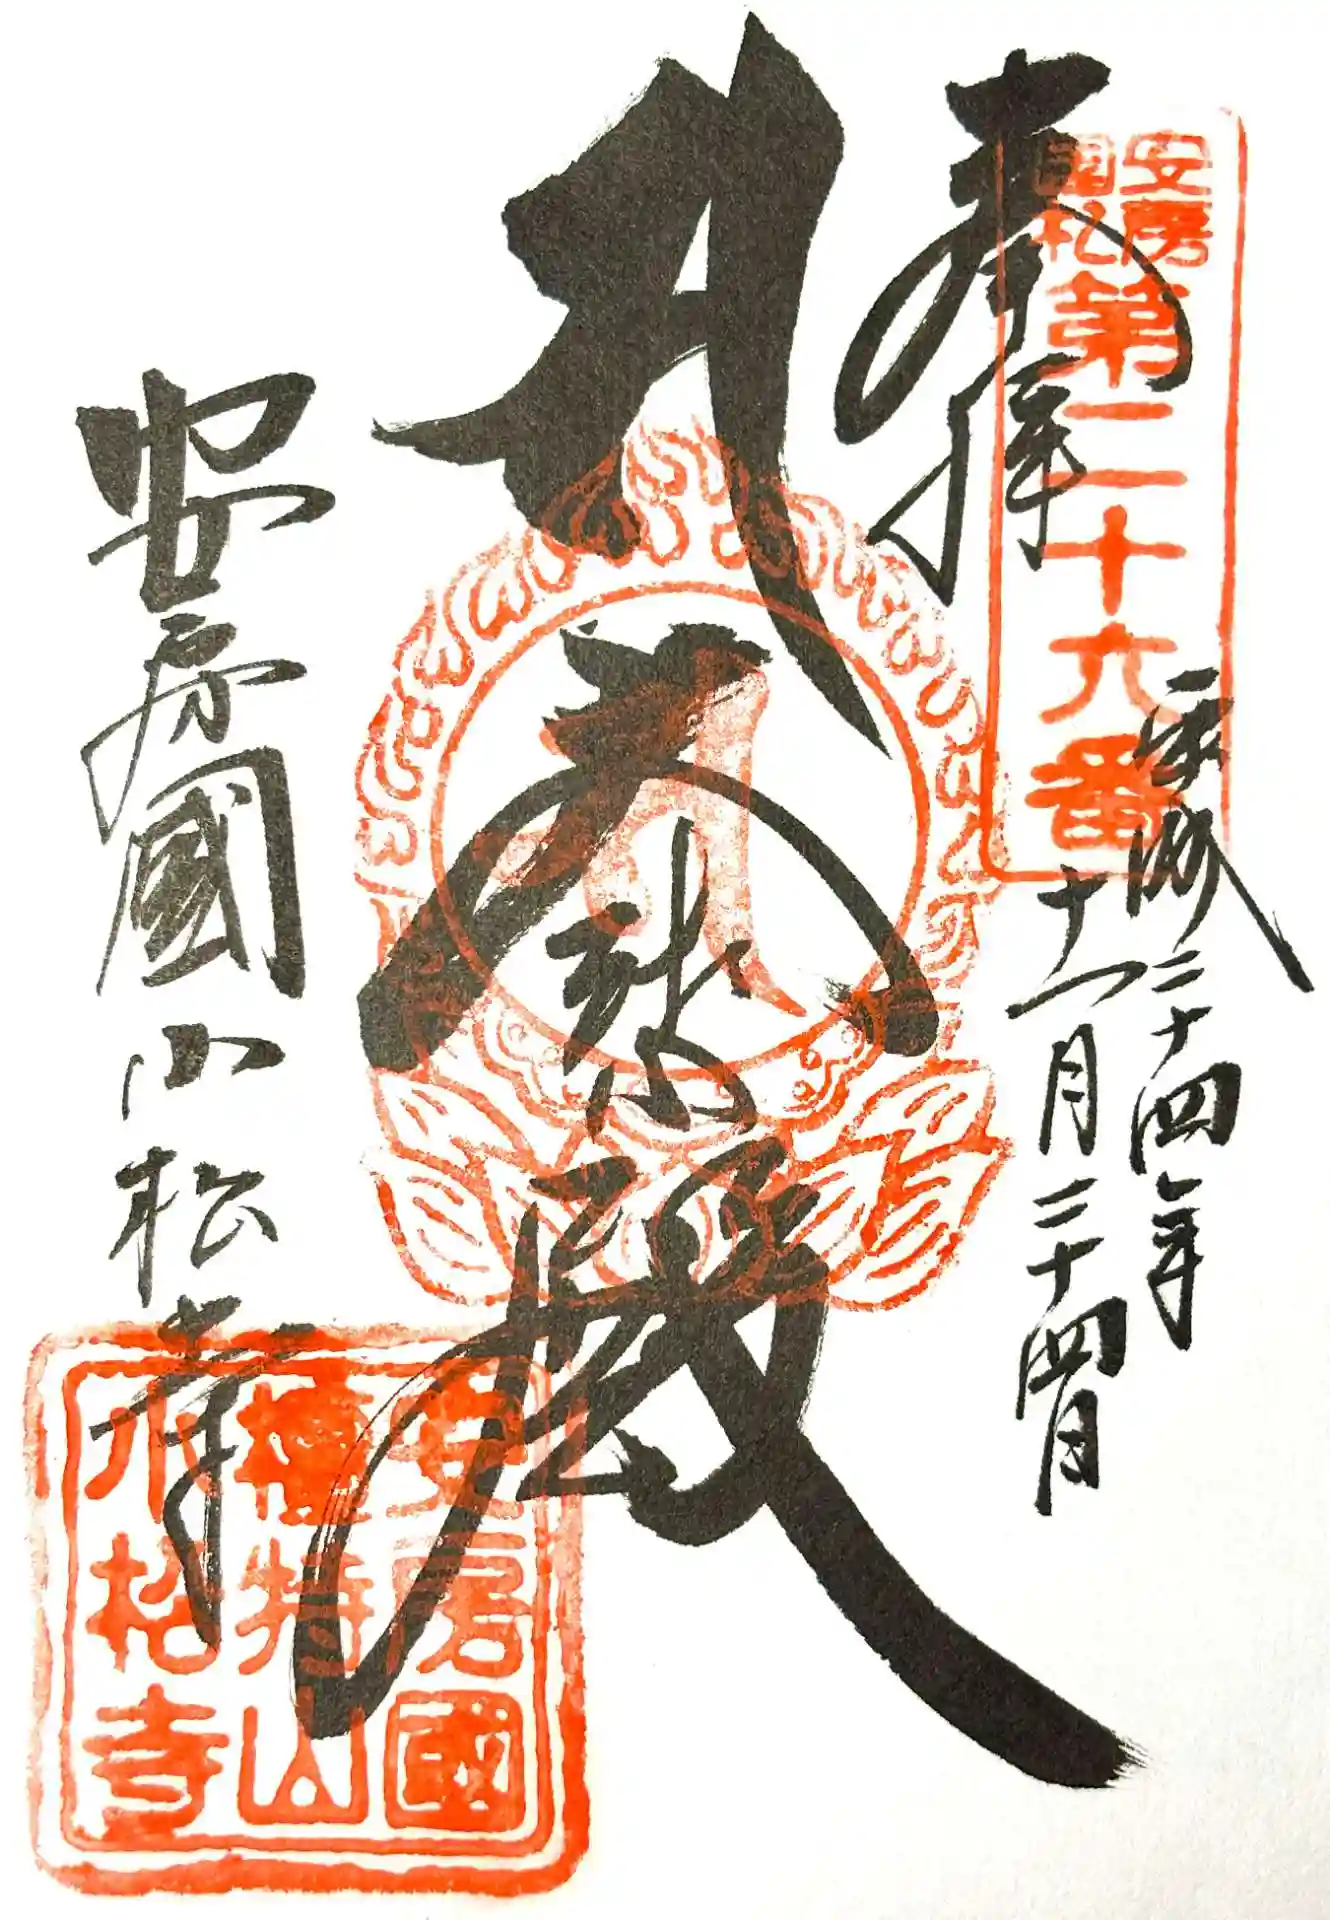 奉拝
安房
國札
第二十六番
平成二十四年
十一月二十四日
大悲殿
安房國小松寺
安房國
檀特山
小松寺